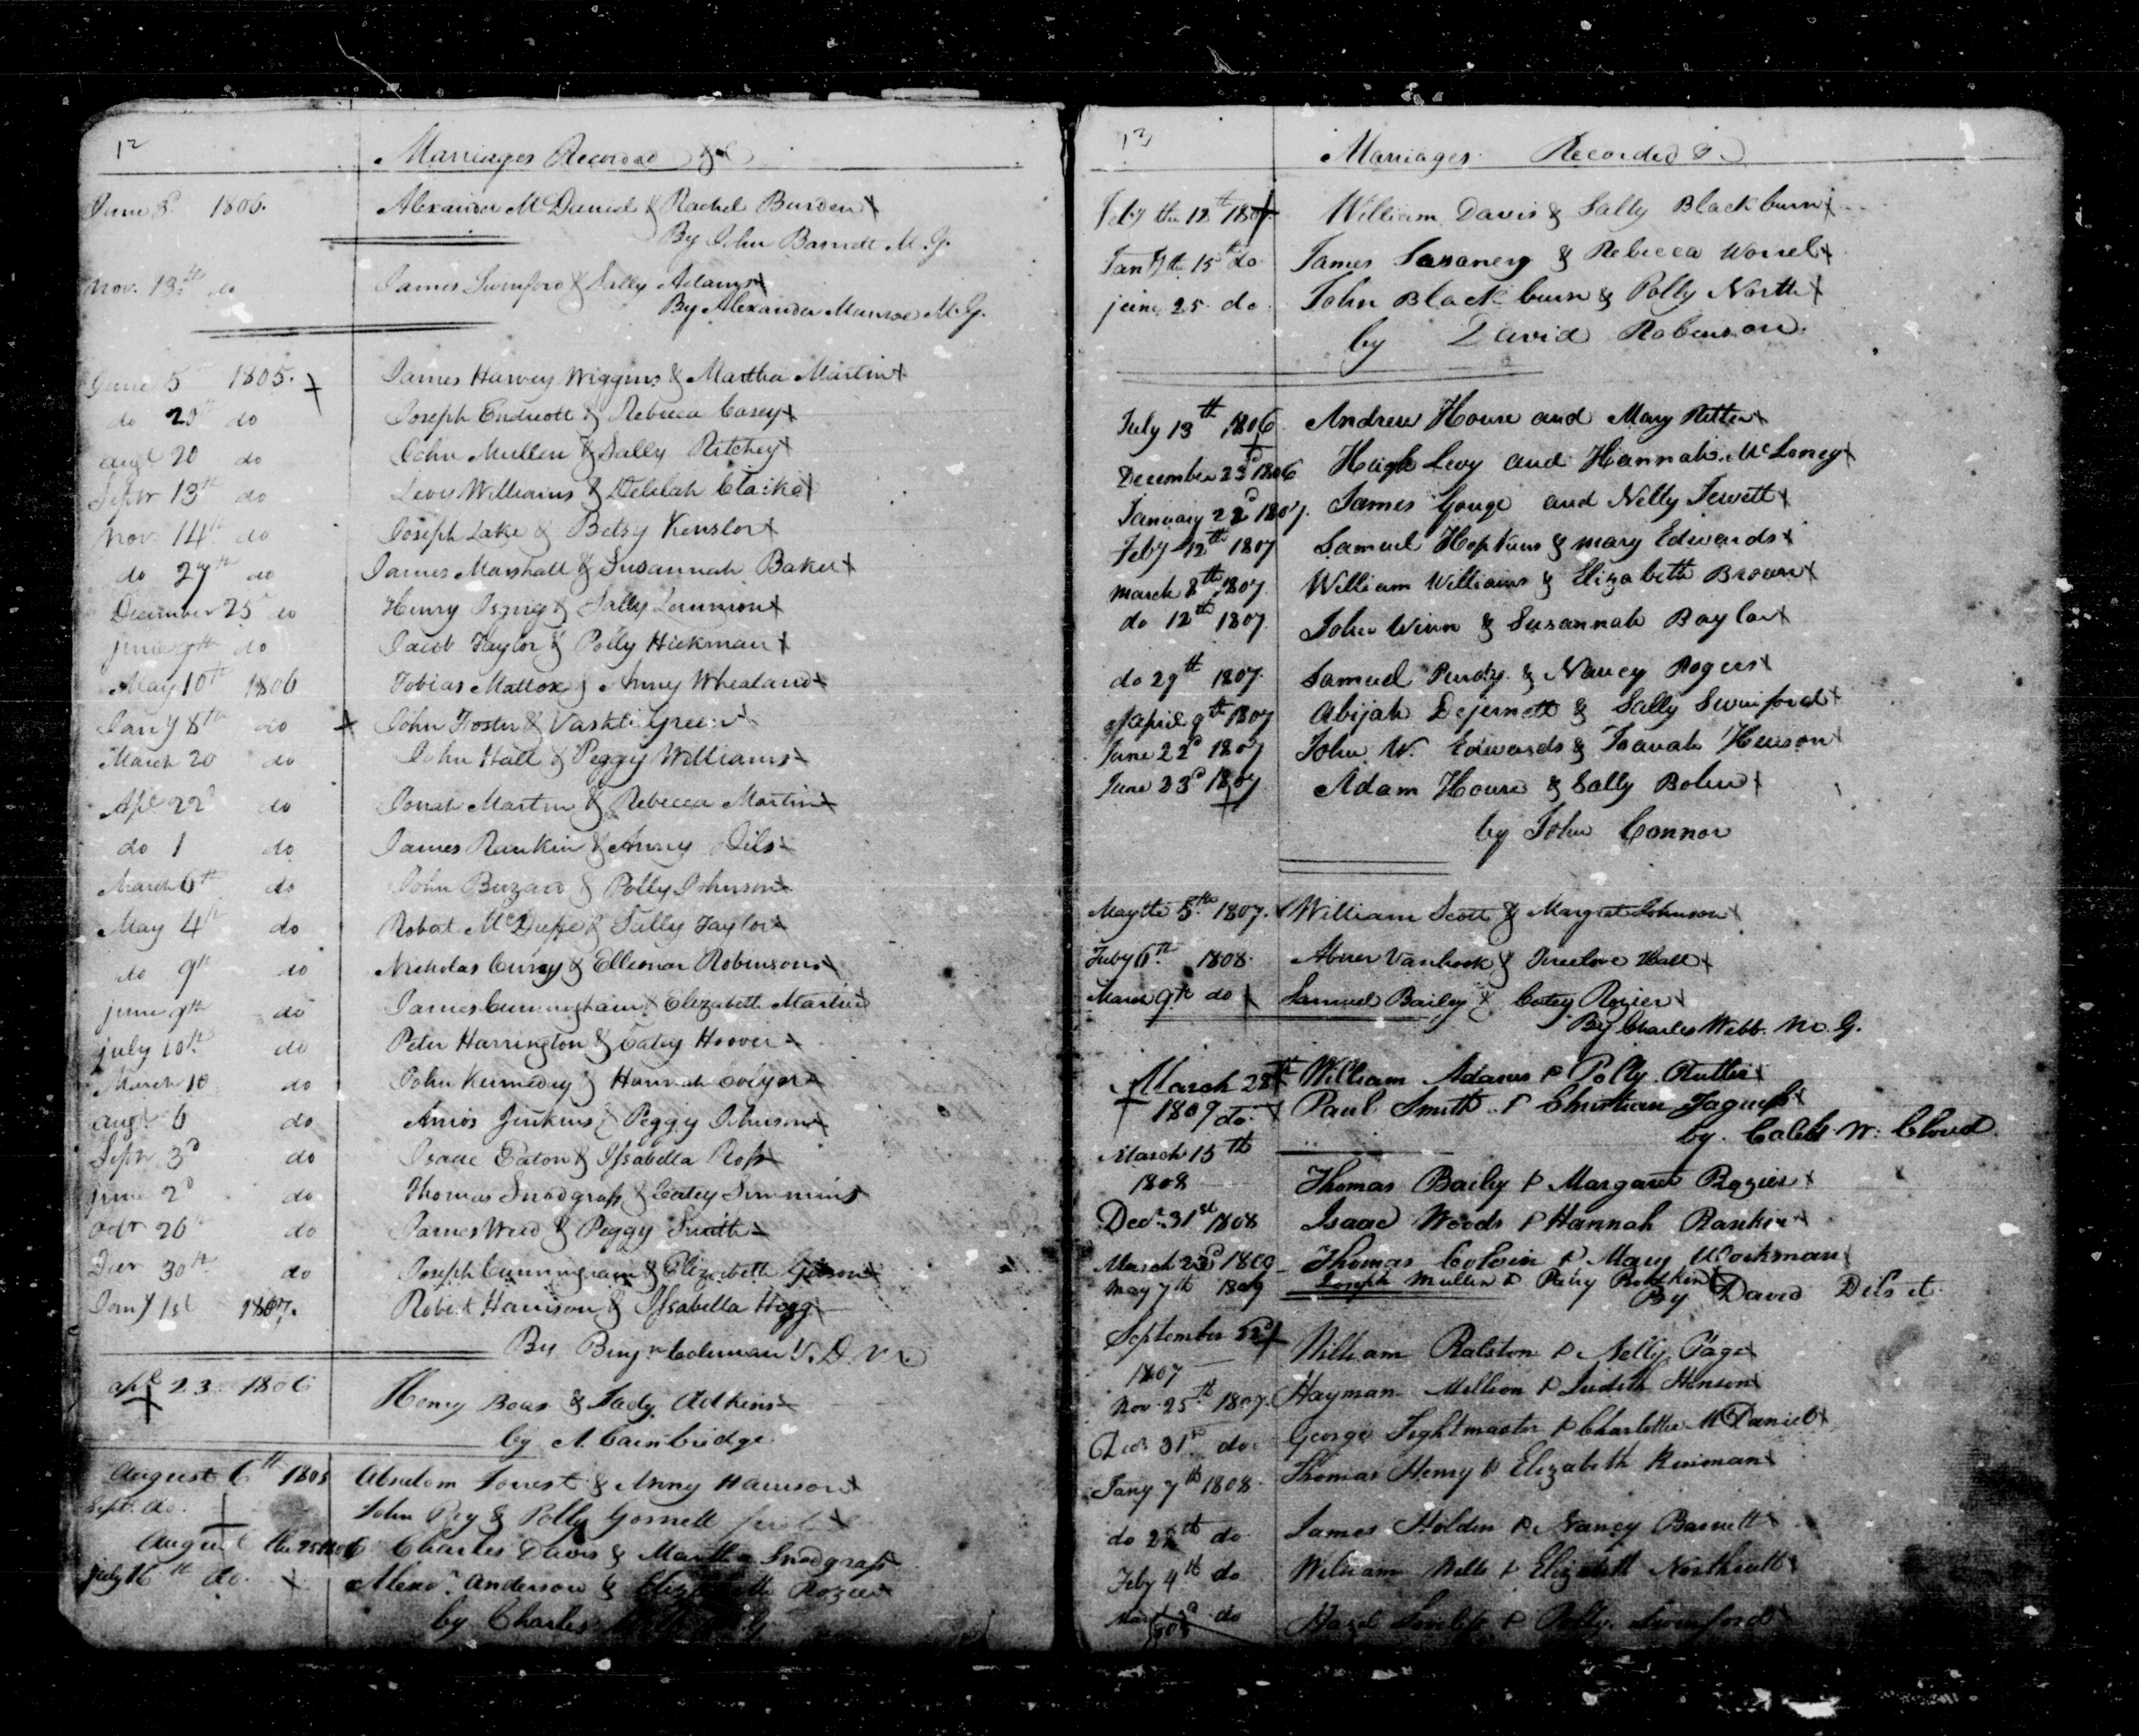 12
Marriages Recorded &c
June 3d 1806. Alexander McDaniel & Rachel Burden
By John Barnett M. G.
Nov. 13th do James Swinford & Sally Adams
By Alexander Munroe M. G.
June 5 1805. James Harvey Wiggins & Martha Martin
do 20th do Joseph Endicott & Rebecca Casey
augt 20 do John Mullen & Sally Ritchey
Septr 13th do Levi Williams & Delilah Clarke
Nov. 14th do Joseph Lake & Betsy Kenslor
do 27th do James Marshall & Susannah Baker
December 25 do Henry & Sally
june 9th do Jacob Taylor & Polly Hickman
May 10th 1806 Tobias Mattox & Anny Whealand
Jany 8th do John Foster & Vashti Green
March 20 do John Hall & Peggy Williams
Apl 22d do Jonah Martin & Rebecca Martin
do 1 do James Rankin & Anny Dils
March 6th do John Buzard & Polly Johnson
May 4th do Robert McDuffe & Sally Taylor
do 9th do Nicholas Curry & Elleonar Robinson
june 9th do James Cunningham & Elizabeth Martin
july 10th do Peter Harrington & Catey Hoover
March 10 do John Kennedy & Hannah
augt 6 do Amos Jenkins & Peggy Johnson
Septr 3d do Isaac Eaton & Issabella Ross
june 2d do Thomas Snodgrass & Catey Simmins
Octr 26th do James Weed & Peggy Smith
Decr 30th do Joseph Cunningham & Elizabeth Gibson
Jany 1st 1807. Robert Harrison & Issabella Hogg
By Benjn Coleman V. D. M.
apl 23 1806 Henry Boas & Sady Adkins
by A. Cainbridge
August 6th 1805 Absalom Forrest & Anny Harrison
Sept. do. John Ray & Polly Gosnell
August the 25 1806 Charles Davis & Martha Snodgrass
July 16th do. Alexr. Anderson & Elizabeth Rozier
by Charles
13
Marriages Recorded &
Feby the 12th 1807 William Davis & Sally Blackburn
Jany the 15th do James & Rebecca Worrel
june 25 do John Blackburn & Polly North
by David Robinson.
July 13th 1806 Andrew House and Mary Ritter
December 23d 1806 Hugh Levy and Hannah McLoney
January 22d 1807. James Gouge and Nelly Jewett
Feby 12th 1807 Samuel Hopkins & mary Edwards
march 8th 1807. William Williams & Elizabeth Brown
do 12th 1807. John Winn & Susannah Baylor
do 29th 1807. Samuel Purdy & Nancy Rogers
April 9th 1807 Abijah Dejernett & Sally Swinford
June 22d 1807 John W. Edwards & Henson
June 23d 1807 Adam House & Sally Bolin
by John Connor
May the 5th 1807. William Scott & Margret Johnson
Feby 6th 1808. Abner Vanhook & Truelove Hall
March 9th do Samuel Bailey & Catey Rozier
By Charles Webb. M. G.
March 28th William Adams & Polly Rutter
1809 do. Paul Smith & Christian Jaquess
by Caleb W. Cloud
March 15th
1808 Thomas Baily & Margaret Rozier
Decr. 31st 1808 Isaac Woods & Hannah Rankin
March 23d 1809 Thomas Colvin & Mary Workman
May 7th 1809 Joseph Mullin & Patsy Botkin
By David Dils
September 22d William Ralston & Nelly Page
1807
Nov. 25th 1807. Hayman Million & Judith Henson
Decr 31st do. George Tightmaster & Charlotte McDaniel
Jany 7th 1808. Thomas Henry & Elizabeth Kinman
do 28th do James Holden & Nancy Barnett
Feby 4th do William Wells & Elizabeth Northcutt
do Hazel & Polly Swinford